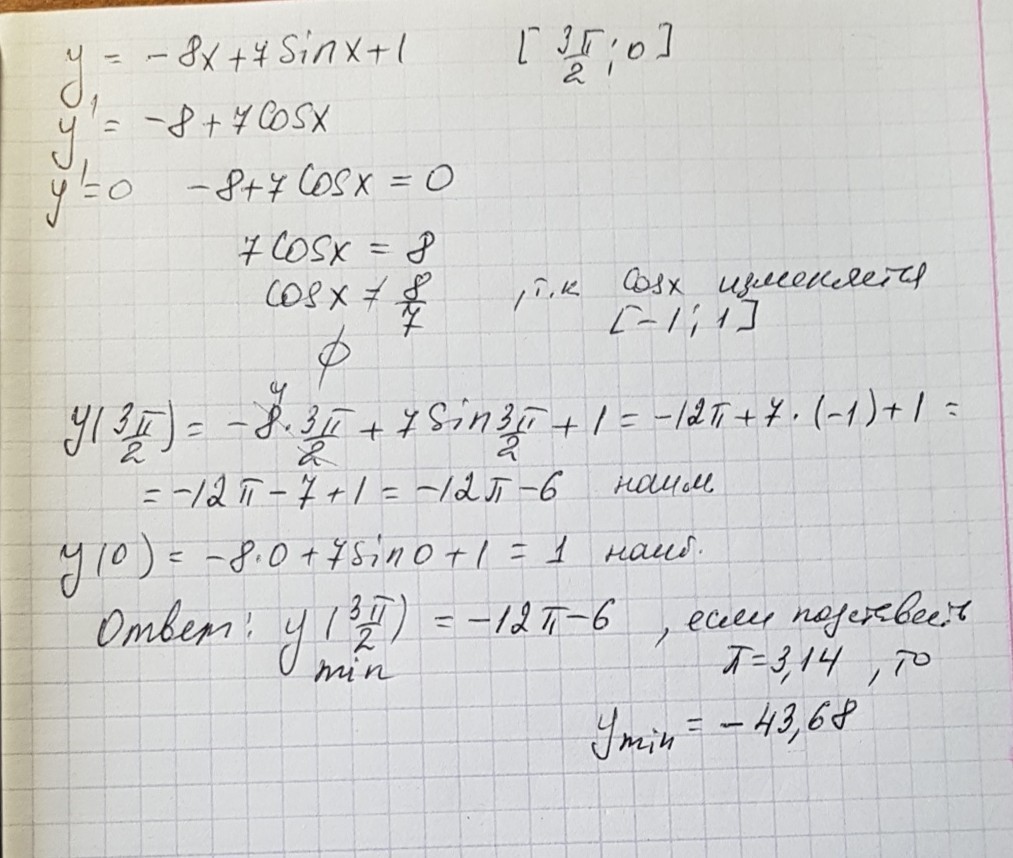 y = -8x+7 sinx+1 [3π/2; 0]
y' = -8+7cosx
y'=0 -8+7cosx = 0
7cosx = 8
cosx ≠ 8/7 , т.к cosx изменяется
[-1; 1]
ϕ
y(3π/2) = -8·3π/2 + 7 sin 3π/2 + 1 = -12π + 7·(-1)+1 =
= -12π-7+1 = -12π-6 наим
y(0) = -8·0+7sin0+1 = 1 наиб.
Ответ: y(3π/2) = -12π-6 , если подставить
min π=3,14 , то
ymin = -43,68